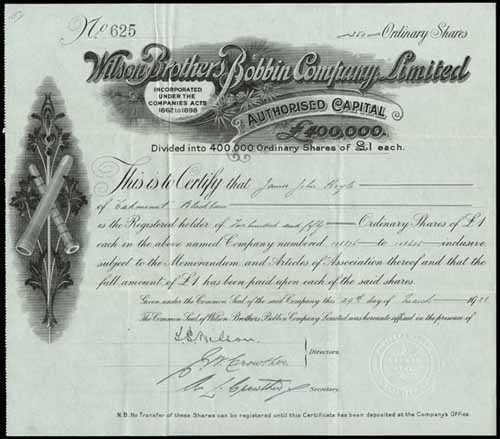 No 625
250 Ordinary Shares
Wilson Brothers Bobbin Company, Limited
INCORPORATED
UNDER THE
COMPANIES ACTS
1862 to 1898
AUTHORISED CAPITAL
£400,000.
Divided into 400,000 Ordinary Shares of £1 each.
This is to Certify that James John
of
as the Registered holder of Two hundred and fifty Ordinary Shares of £1
each in the above named Company numbered to inclusive
subject to the Memorandum and Articles of Association thereof and that the
full amount of £1 has been paid upon each of the said shares.
Given under the Common Seal of the said Company this 29th day of March 19
The Common Seal of Wilson Brothers Bobbin Company Limited was hereunto affixed in the presence of
Wilson.
Crowther
Directors.
Crowther
Secretary.
N.B. No Transfer of these Shares can be registered until this Certificate has been deposited at the Company's Office.